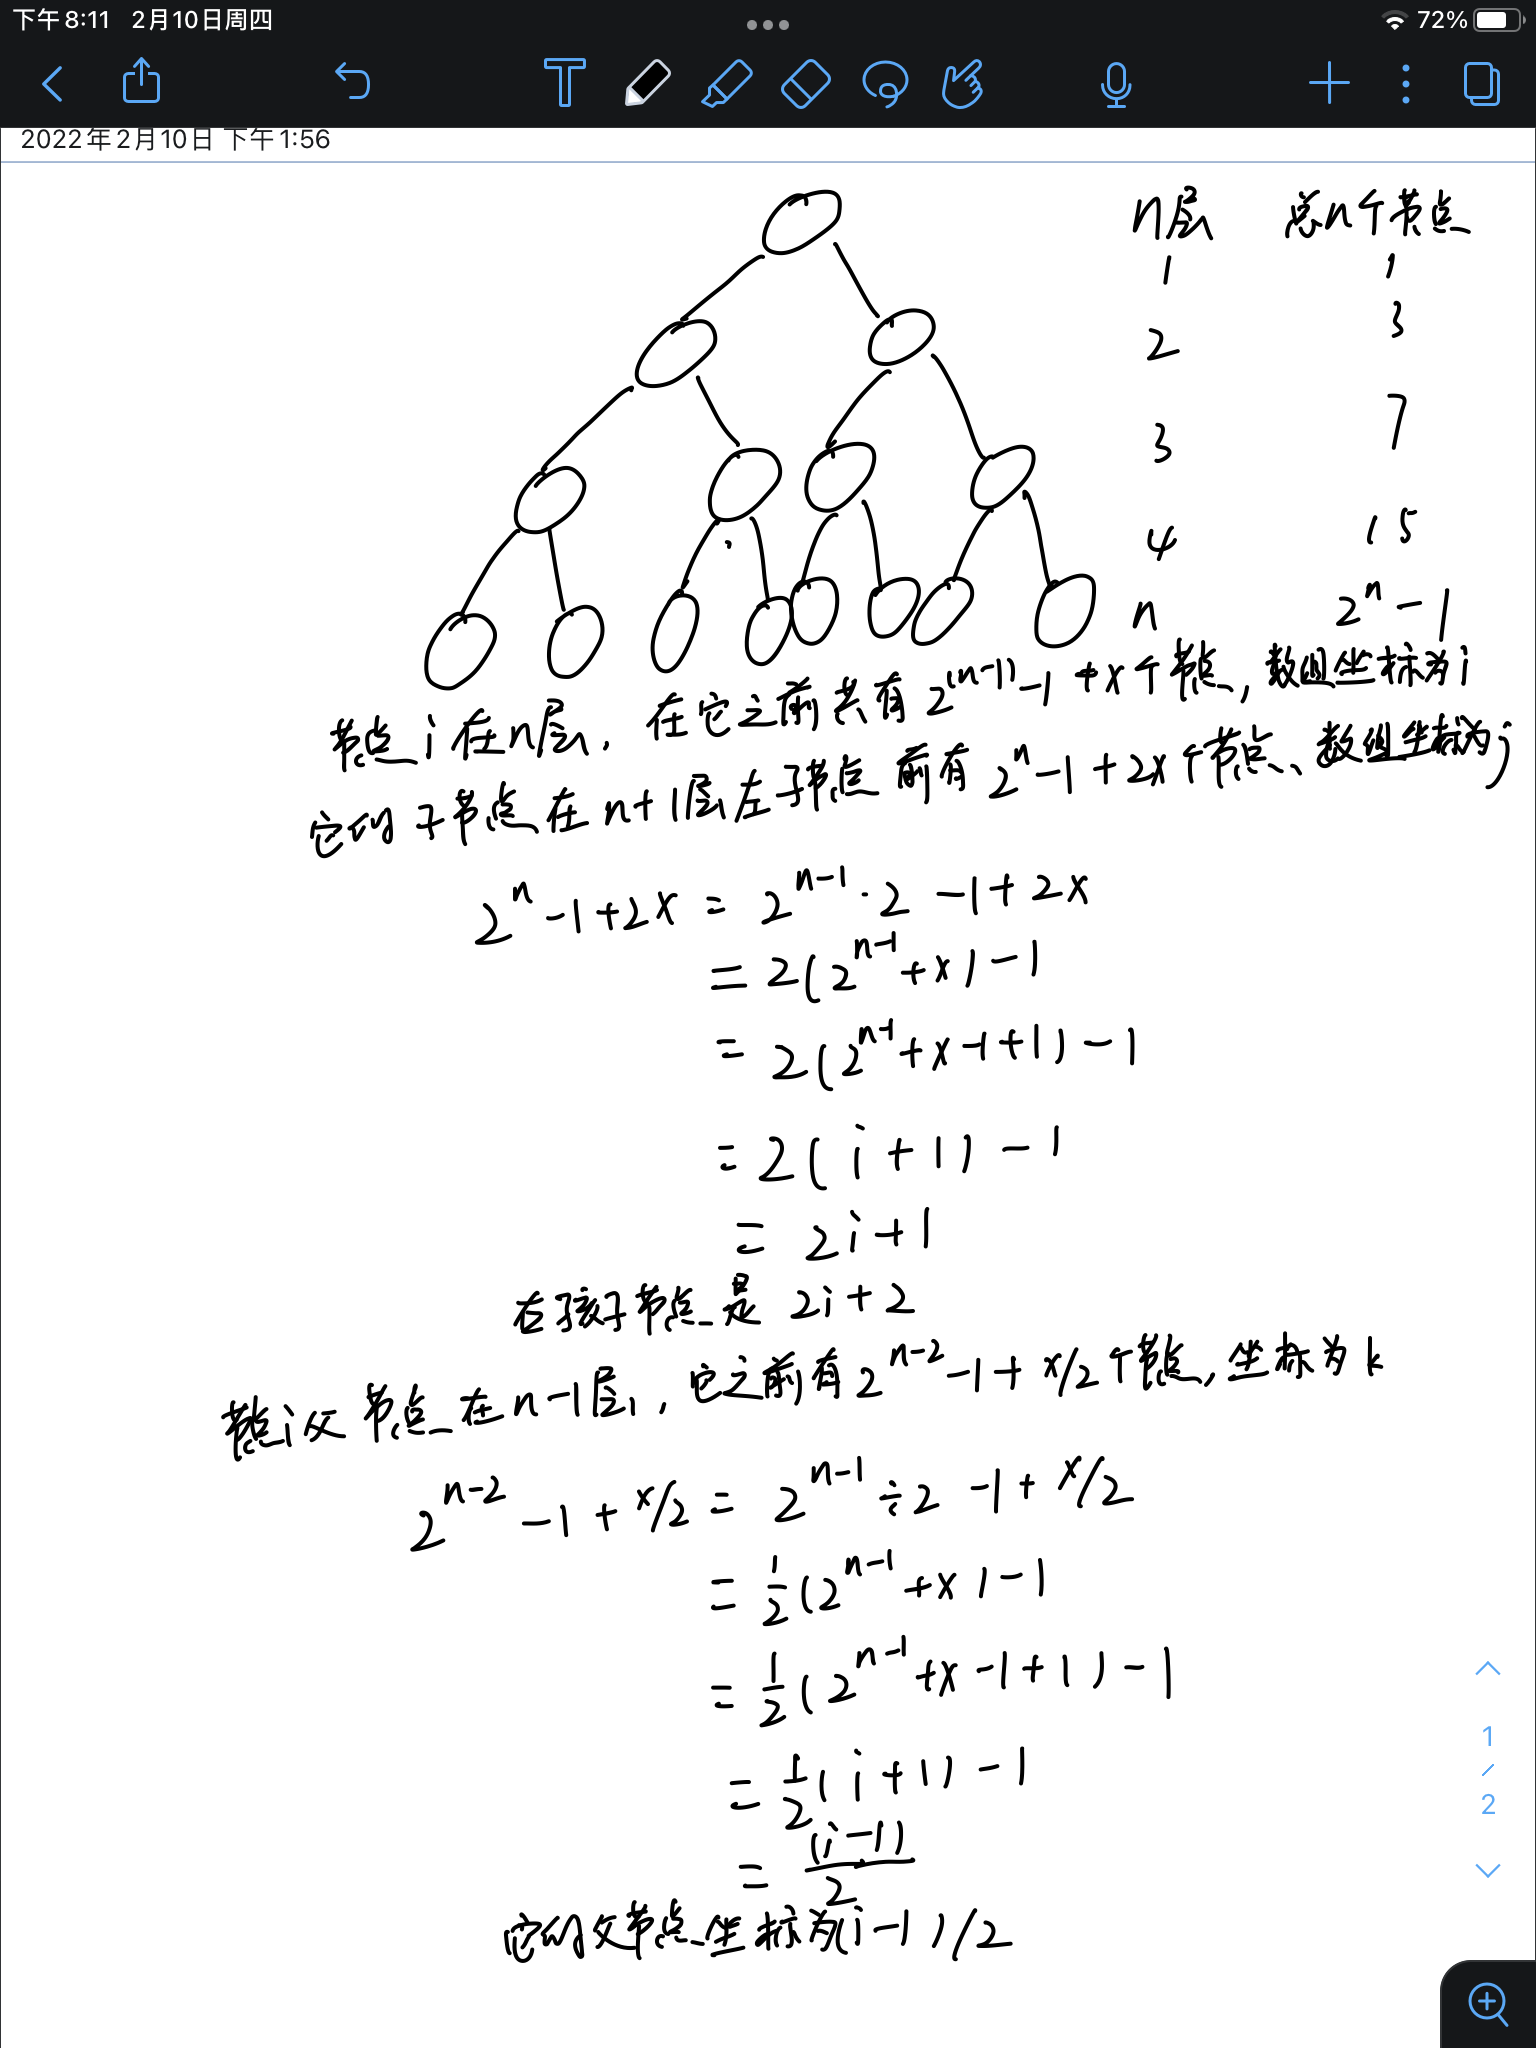 下午8:11 2月10日周四
72%
2022年2月10日 下午1:56
n层 总n个节点
1 1
2 3
3 7
4 15
n 2^n-1
节点i在n层, 在它之前共有2^(n-1)-1+x个节点, 数组坐标为i
它的子节点在n+1层左子节点前有2^n-1+2x个节点、数组坐标为j
2^n-1+2x = 2^n-1·2 -1+2x
= 2(2^n-1+x)-1
= 2(2^n-1+x-1+1)-1
= 2(i+1)-1
= 2i+1
右孩子节点是 2i+2
节点i父节点在n-1层, 它之前有2^n-2-1+x/2个节点, 坐标为k
2^n-2-1+x/2 = 2^n-1÷2 -1+x/2
= 1/2(2^n-1+x)-1
= 1/2(2^n-1+x-1+1)-1
= 1/2(i+1)-1
= (i-1)/2
它的父节点坐标为(i-1)/2
1
/
2